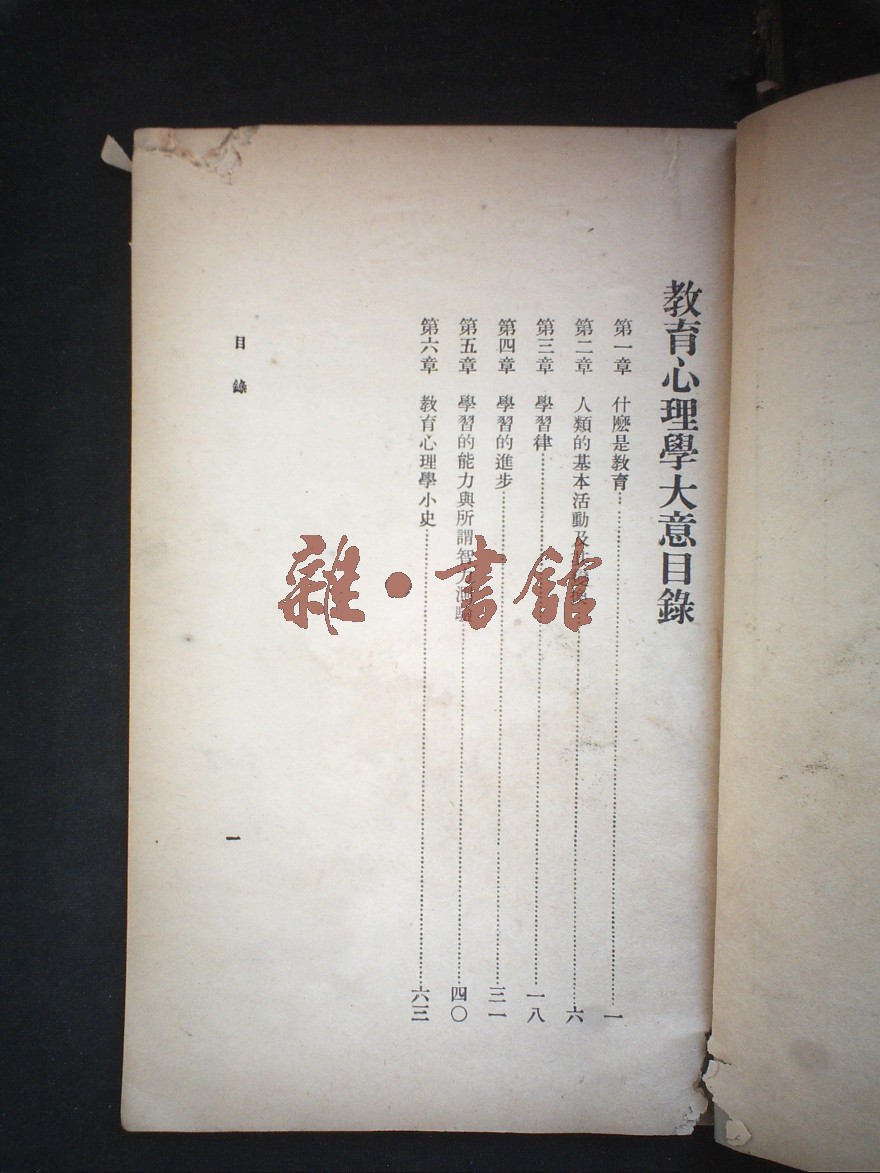 教育心理學大意目錄
第一章 什麼是教育……一
第二章 人類的基本活動及……六
第三章 學習律……一八
第四章 學習的進步……三一
第五章 學習的能力與所謂智力測驗……四〇
第六章 教育心理學小史……六三
目錄
一
雜·書館